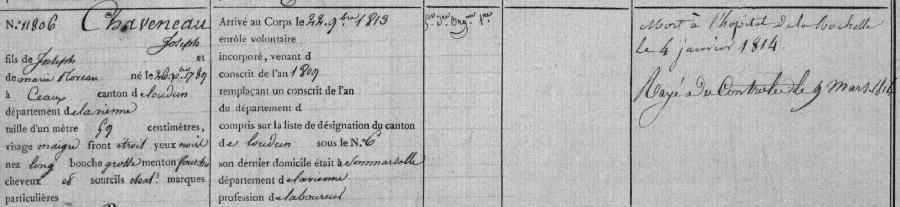 N.° 11806 Chaveneau
Joseph
fils de Joseph et
de marie Moreau né le 26 xbre 1789
à Ceaux canton de loudun
département de lavienne
taille d'un mètre 59 centimètres,
visage maigre front étroit yeux noir
nez long bouche grosse menton fourchu
cheveux et sourcils chat.s marques
particulières
Arrivé au Corps le 22. 9bre 1813
enrôlé volontaire
incorporé, venant d
conscrit de l'an 1809
remplaçant un conscrit de l'an
du département d
compris sur la liste de désignation du canton
de loudun sous le N.° 6
son dernier domicile était à Sommarsolle
département de lavienne
profession de laboureur
Mort à l'hopital de la Rochelle
le 4 janvier 1814.
Rayé du Controle le 9 Mars 1814